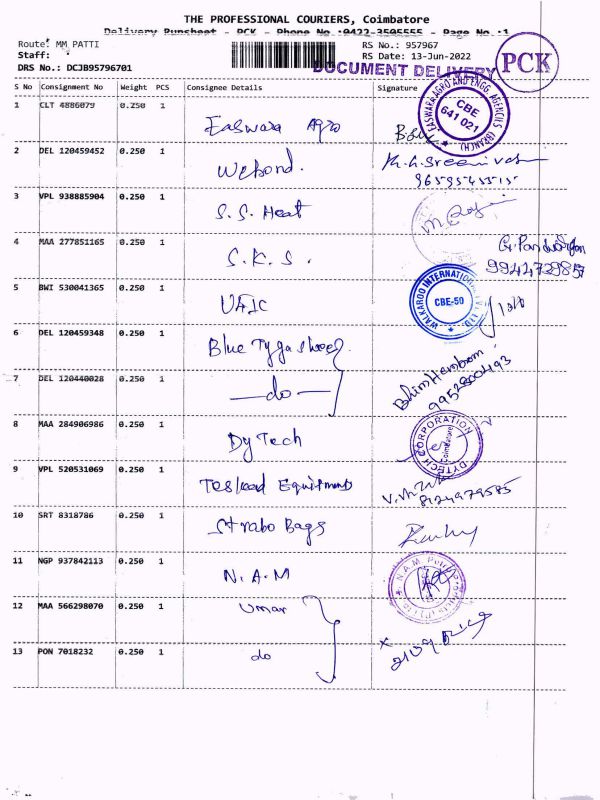 THE PROFESSIONAL COURIERS, Coimbatore
Delivery Runsheet - PCK - Phone No.:0422-3505555 - Page No.:1
Route: MM PATTI
RS No.: 957967
Staff:
RS Date: 13-Jun-2022
DRS No.: DCJB95796701
DOCUMENT DELIVERY
PCK
S No Consignment No Weight PCS Consignee Details Signature
1 CLT 4886079 0.250 1 Easwara Agro
EASWARA AGRO AND ENGG. AGENCIES (BRANCH)
CBE
641 021
2 DEL 120459452 0.250 1 Webond.
K.G.Sreenivasan
3 VPL 938885904 0.250 1 S.S. Heat
4 MAA 277851165 0.250 1 S.K.S.
5 BWI 530041365 0.250 1 VAIC
WALKAROO INTERNATIONAL
CBE-50
6 DEL 120459348 0.250 1 Blue Tyga shoes
7 DEL 120440028 0.250 1 — do —
Bhim Hembram
9952800493
8 MAA 284906986 0.250 1 Dy Tech
DYTECH CORPORATION
Coimbatore
9 VPL 520531069 0.250 1 Equipments
8124979585
10 SRT 8318786 0.250 1 Strabo Bags
11 NGP 937842113 0.250 1 N.A.M
12 MAA 566298070 0.250 1 Umar
13 PON 7018232 0.250 1 do